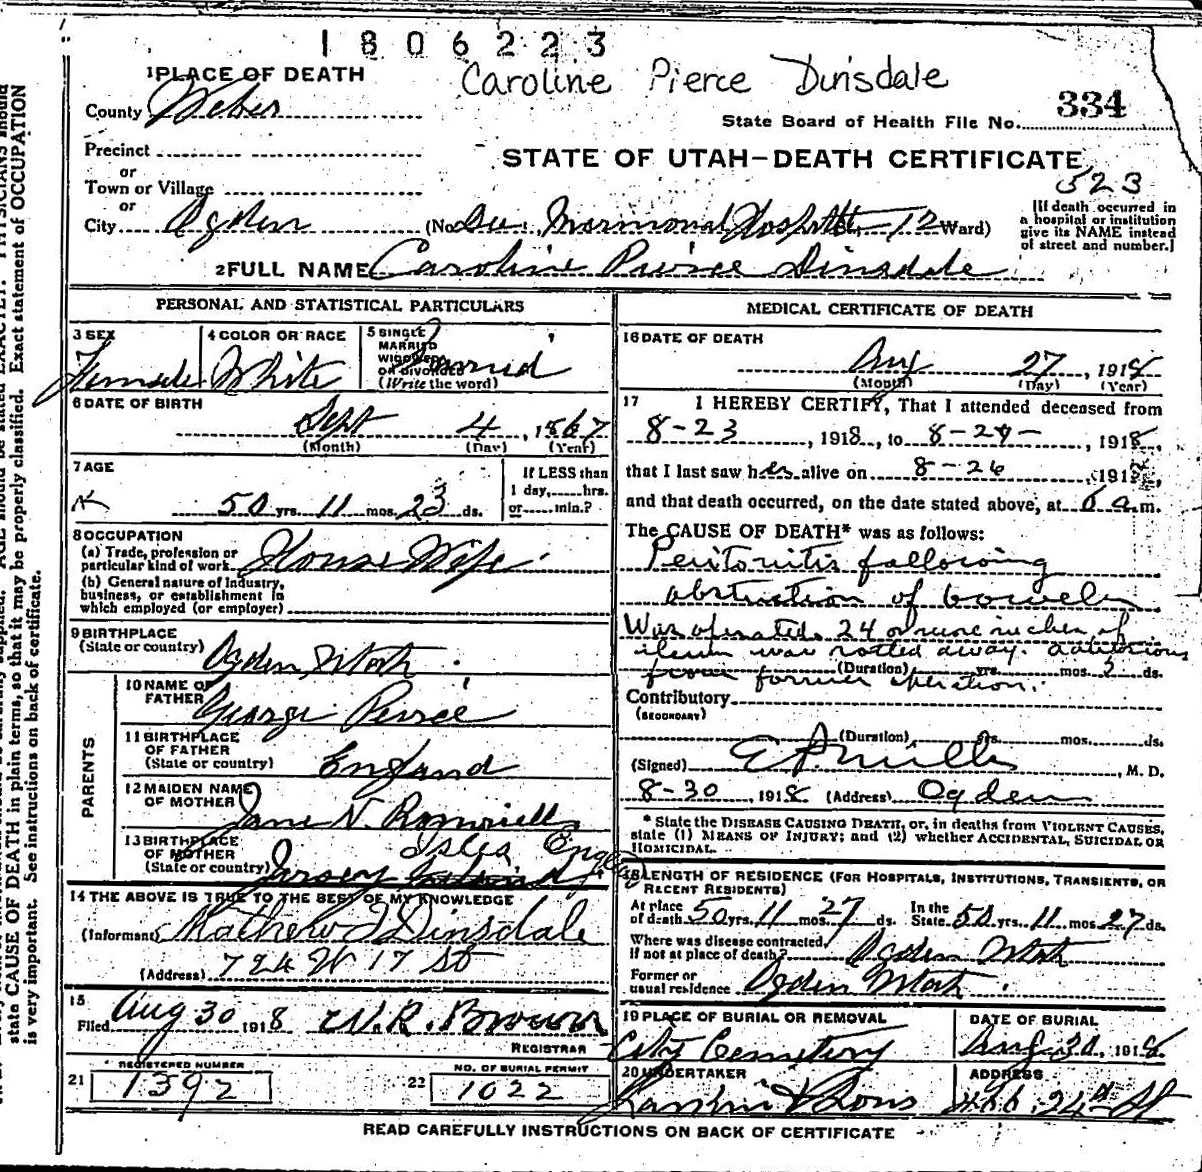 1806223
Caroline Pierce Dinsdale
334
State Board of Health File No.
STATE OF UTAH-DEATH CERTIFICATE
523
[If death occurred in
a hospital or institution
give its NAME instead
of street and number.]
1 PLACE OF DEATH
County Weber
Precinct
or
Town or Village
or
City Ogden (No Dee Mormonal Hospital St., 12 Ward)
2 FULL NAME Caroline Pierce Dinsdale
PERSONAL AND STATISTICAL PARTICULARS
3 SEX
Female
4 COLOR OR RACE
White
5 SINGLE
MARRIED
WIDOWED
OR DIVORCED
(Write the word)
Married
6 DATE OF BIRTH
Sept 4, 1867
(Month) (Day) (Year)
7 AGE
50 yrs. 11 mos. 23 ds.
If LESS than
1 day, hrs.
or min.?
8 OCCUPATION
(a) Trade, profession or
particular kind of work House Wife
(b) General nature of Industry,
business, or establishment in
which employed (or employer)
9 BIRTHPLACE
(State or country) Ogden Utah
PARENTS
10 NAME OF
FATHER George Pierce
11 BIRTHPLACE
OF FATHER
(State or country) England
12 MAIDEN NAME
OF MOTHER Jane N. Romriell
13 BIRTHPLACE
OF MOTHER
(State or country) Jersey Isles
14 THE ABOVE IS TRUE TO THE BEST OF MY KNOWLEDGE
(Informant) Mathew Dinsdale
(Address) 724 W 17 St
15
Filed Aug 30 1918 W. R. Brown
REGISTRAR
REGISTERED NUMBER
21 1392
NO. OF BURIAL PERMIT
22 1022
MEDICAL CERTIFICATE OF DEATH
16 DATE OF DEATH
Aug 27, 1918
(Month) (Day) (Year)
17 I HEREBY CERTIFY, That I attended deceased from
8-23, 1918, to 8-27, 1918,
that I last saw her alive on 8-26, 1918,
and that death occurred, on the date stated above, at 6 a.m.
The CAUSE OF DEATH* was as follows:
Peritonitis following
obstruction of bowels
Was operated. 24 or more inches of
ileum was rotted away. adhesions
from former operation.
(Duration) yrs. mos. 3 ds.
Contributory
(SECONDARY)
(Duration) yrs. mos. ds.
(Signed) E P Mills, M. D.
8-30, 1918 (Address) Ogden
* State the DISEASE CAUSING DEATH, or, in deaths from VIOLENT CAUSES,
state (1) MEANS OF INJURY; and (2) whether ACCIDENTAL, SUICIDAL OR
HOMICIDAL.
18 LENGTH OF RESIDENCE (FOR HOSPITALS, INSTITUTIONS, TRANSIENTS, OR
RECENT RESIDENTS)
At place
of death 50 yrs. 11 mos. 27 ds. In the
State 50 yrs. 11 mos. 27 ds.
Where was disease contracted,
if not at place of death? Ogden Utah
Former or
usual residence Ogden Utah
19 PLACE OF BURIAL OR REMOVAL
City Cemetery
DATE OF BURIAL
Aug 30, 1918
20 UNDERTAKER
Larkin & Sons
ADDRESS
24th St
READ CAREFULLY INSTRUCTIONS ON BACK OF CERTIFICATE
state CAUSE OF DEATH in plain terms, so that it may be properly classified. Exact statement of OCCUPATION
is very important. See instructions on back of certificate.